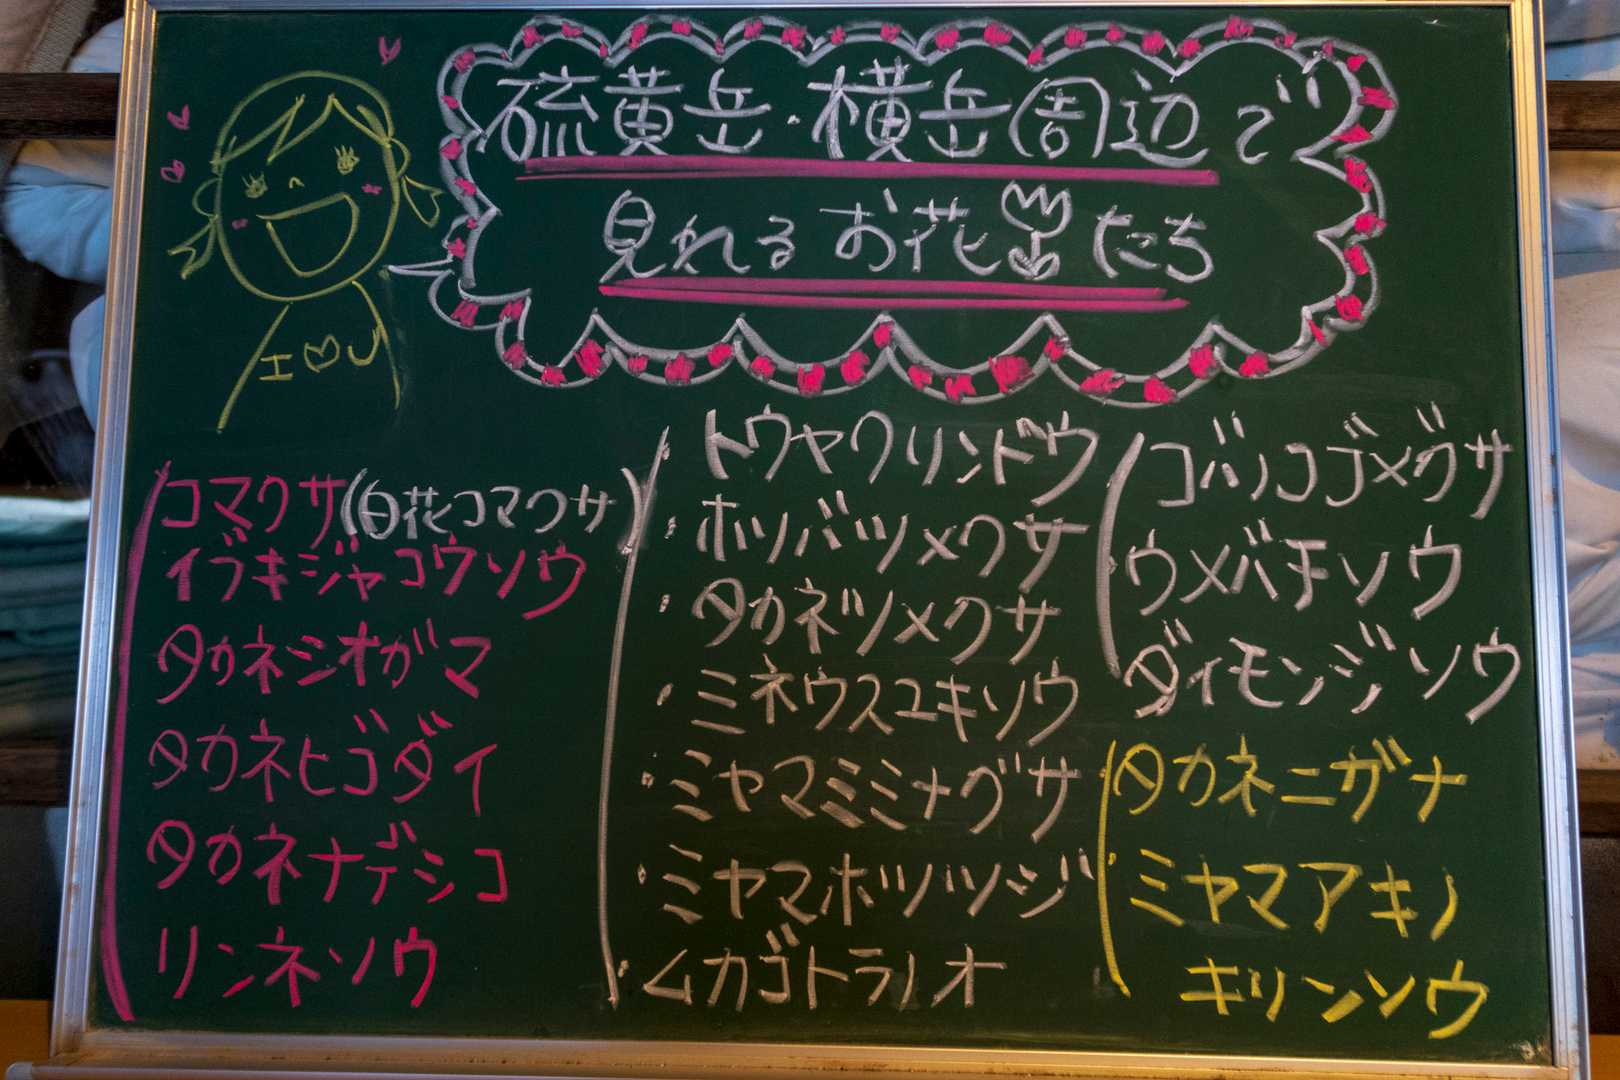 硫黄岳・横岳周辺で
見れるお花たち
I ♡ U
コマクサ(白花コマクサ)
イブキジャコウソウ
タカネシオガマ
タカネヒゴダイ
タカネナデシコ
リンネソウ
・トウヤクリンドウ
・ホソバツメクサ
・タカネツメクサ
・ミネウスユキソウ
・ミヤマミミナグサ
・ミヤマホツツジ
・ムカゴトラノオ
コバノコゴメグサ
・ウメバチソウ
ダイモンジソウ
タカネニガナ
・ミヤマアキノ
キリンソウ